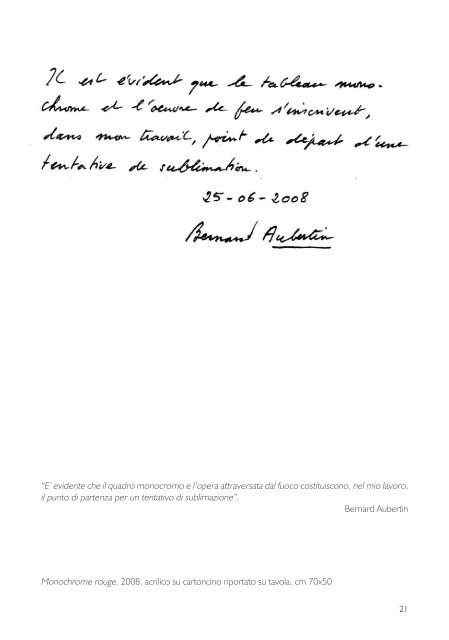 Il est évident que le tableau mono-
chrome et l'oeuvre de feu s'inscrivent,
dans mon travail, point de départ d'une
tentative de sublimation.
25-06-2008
Bernard Aubertin
“E’ evidente che il quadro monocromo e l’opera attraversata dal fuoco costituiscono, nel mio lavoro,
il punto di partenza per un tentativo di sublimazione”.
Bernard Aubertin
Monochrome rouge, 2008, acrilico su cartoncino riportato su tavola, cm 70x50
21